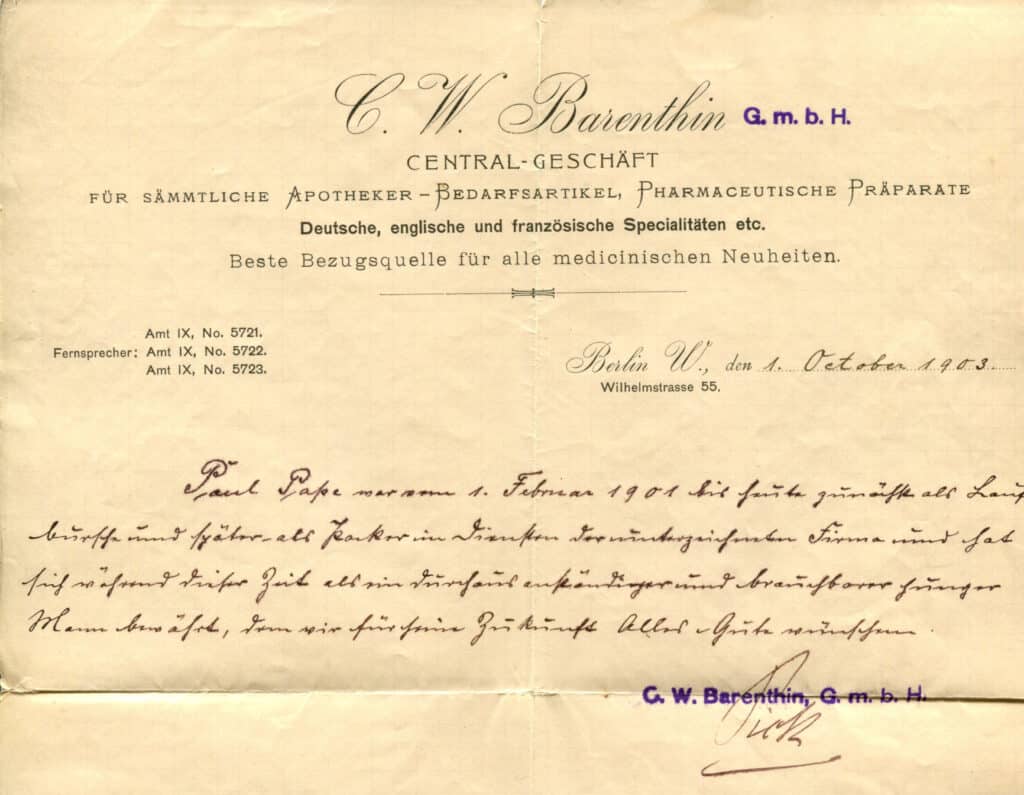 C. W. Barenthin G. m. b. H.
CENTRAL-GESCHÄFT
FÜR SÄMMTLICHE APOTHEKER-BEDARFSARTIKEL, PHARMACEUTISCHE PRÄPARATE
Deutsche, englische und französische Specialitäten etc.
Beste Bezugsquelle für alle medicinischen Neuheiten.
Amt IX, No. 5721.
Fernsprecher: Amt IX, No. 5722.
Amt IX, No. 5723.
Berlin W., den 1. October 1903.
Wilhelmstrasse 55.
Paul Pape war vom 1. Februar 1901 bis heute zunächst als Lauf
bursche und später als Packer in Diensten der unterzeichneten Firma und hat
sich während dieser Zeit als ein durchaus anständiger und brauchbarer junger
Mann bewährt, dem wir für seine Zukunft Alles Gute wünschen.
C. W. Barenthin, G. m. b. H.